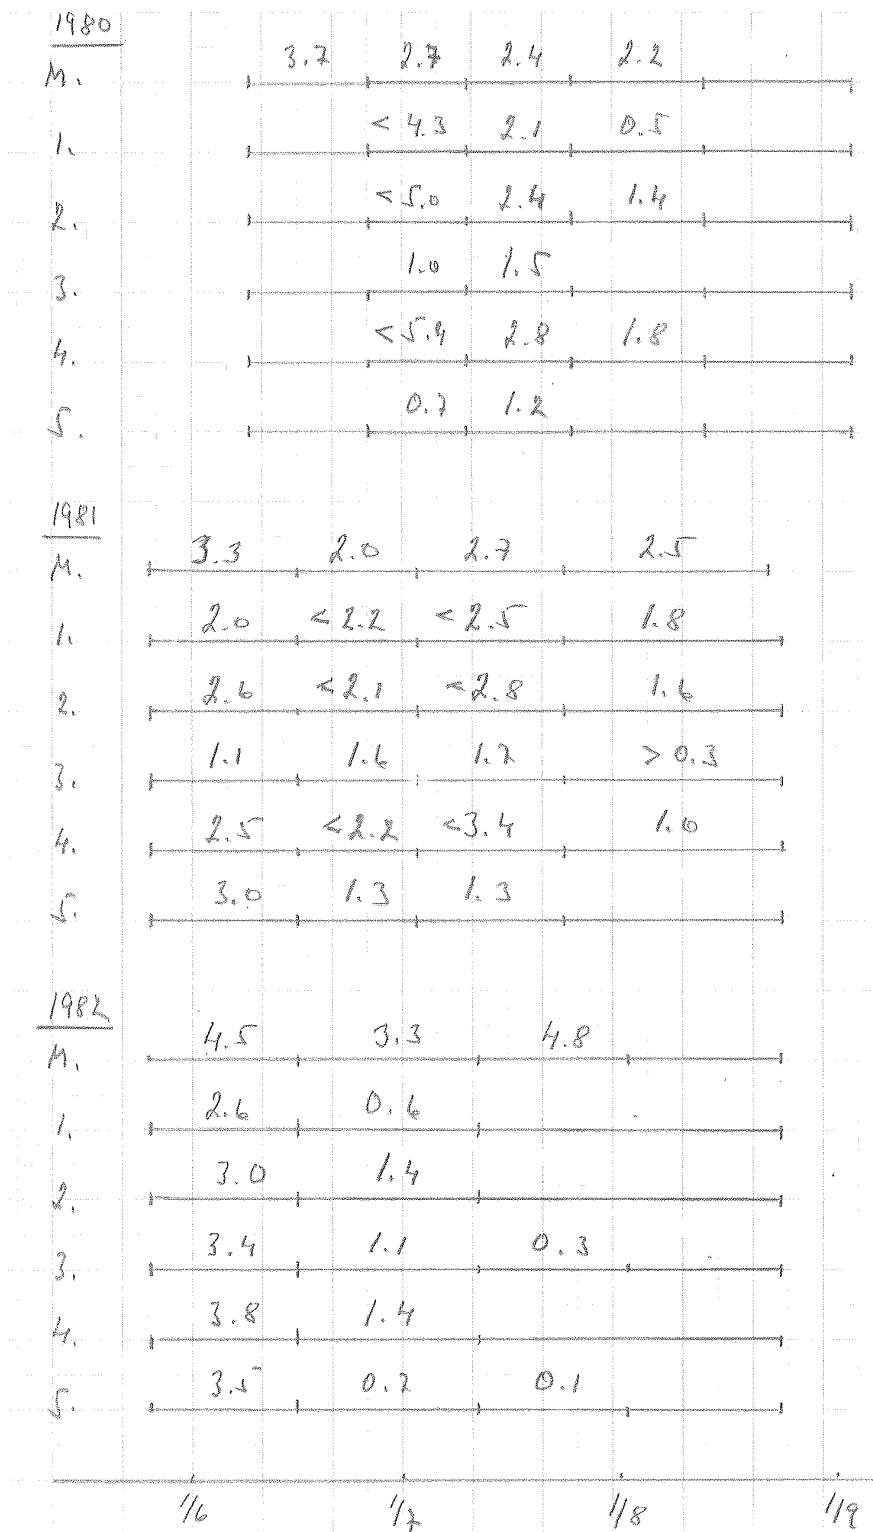 1980
M. 3.7 2.7 2.4 2.2
1. < 4.3 2.1 0.5
2. < 5.0 2.4 1.4
3. 1.0 1.5
4. < 5.4 2.8 1.8
5. 0.7 1.2
1981
M. 3.3 2.0 2.7 2.5
1. 2.0 < 2.2 < 2.5 1.8
2. 2.6 < 2.1 < 2.8 1.6
3. 1.1 1.6 1.7 > 0.3
4. 2.5 < 2.2 < 3.4 1.0
5. 3.0 1.3 1.3
1982
M. 4.5 3.3 4.8
1. 2.6 0.6
2. 3.0 1.4
3. 3.4 1.1 0.3
4. 3.8 1.4
5. 3.5 0.7 0.1
1/6 1/7 1/8 1/9